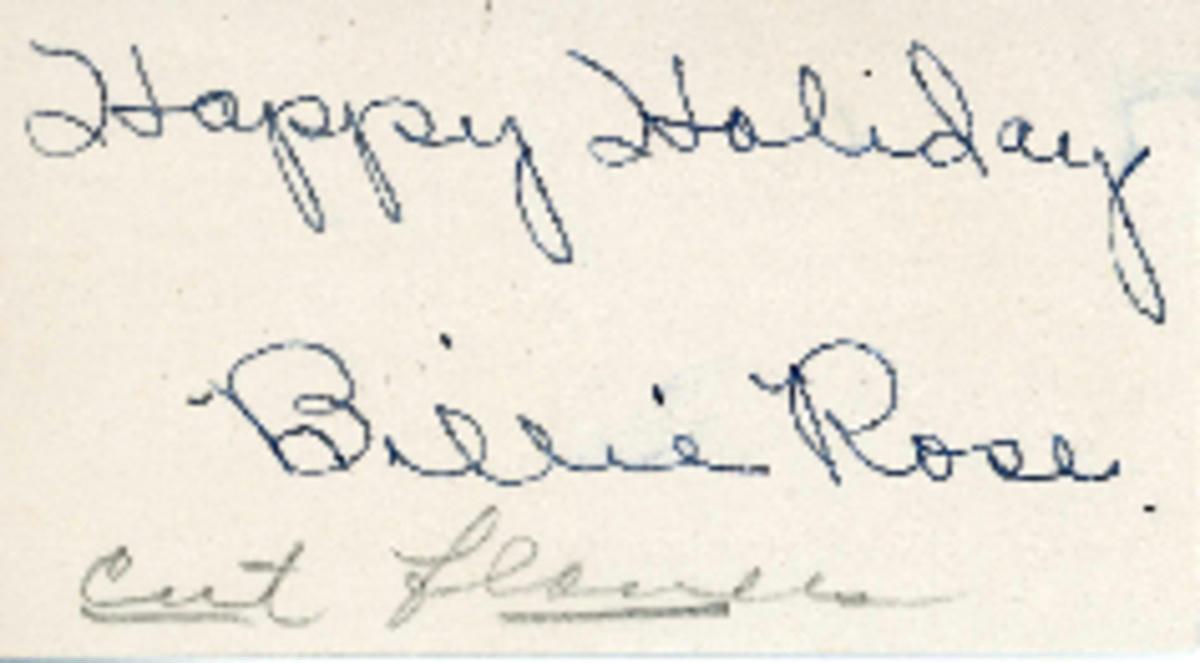 Happy Holiday
Billie Rose.
Cut flowers